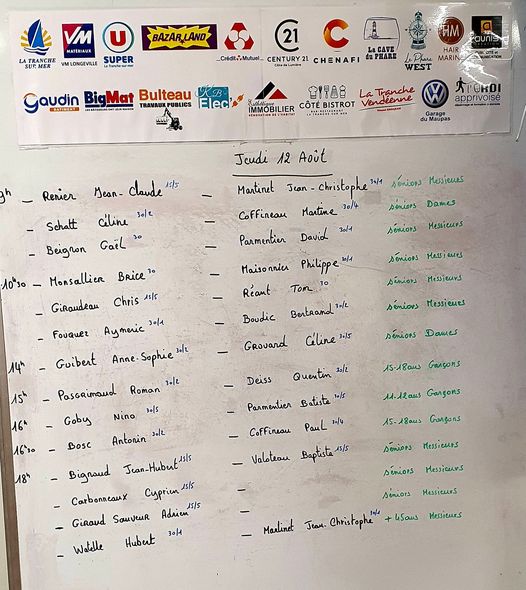 LA TRANCHE SUR MER
VM MATÉRIAUX
VM LONGEVILLE
U SUPER
La Tranche-sur-mer
BAZAR LAND
Crédit Mutuel
21
CENTURY 21
Côte de Lumière
CHENAFI
LA CAVE DU PHARE
Le Phare WEST
HM
HAIR MARINE
Gaudin
BATIMENT
BigMat
Bulteau
TRAVAUX PUBLICS
KB Elec
Esthétique IMMOBILIER
RÉNOVATION DE L'HABITAT
CÔTÉ BISTROT
La Tranche Vendéenne
Garage du Maupas
L'ORDI apprivoisé
Jeudi 12 Août
9h – Renier Jean-Claude 15/5 – Martinet Jean-Christophe 30/1 séniors Messieurs
– Schatt Céline 30/2 – Coffineau Martine 30/4 séniors Dames
– Beignon Gaël 30 – Parmentier David 30/1 séniors Messieurs
10h30 – Monsallier Brice 30 – Maisonnier Philippe 30/1 séniors Messieurs
– Giraudeau Chris 15/5 – Réant Tom 30 séniors Messieurs
– Fouquez Aymeric 30/1 – Boudic Bertrand 30/2 séniors Messieurs
14h – Guibert Anne-Sophie 30/2 – Grouard Céline 30/5 séniors Dames
15h – Pasgrimaud Roman 30/2 – Deiss Quentin 30/2 15-18 ans Garçons
16h – Goby Nino 30/5 – Parmentier Batiste 30/5 11-12 ans Garçons
16h30 – Bosc Antonin 30/2 – Coffineau Paul 30/4 15-18 ans Garçons
18h – Bignaud Jean-Hubert 15/5 – Valoteau Baptiste 15/5 séniors Messieurs
– Carbonneaux Cyprien 15/5 – séniors Messieurs
– Giraud Sauveur Adrien 15/5 – séniors Messieurs
– Watelle Hubert 30/1 – Martinet Jean-Christophe 30/1 + 45 ans Messieurs